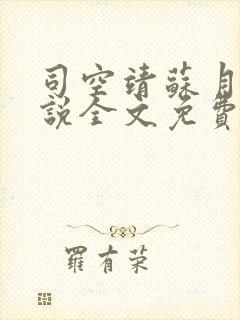 司空靖蘇月
說全文免費
羅有荣